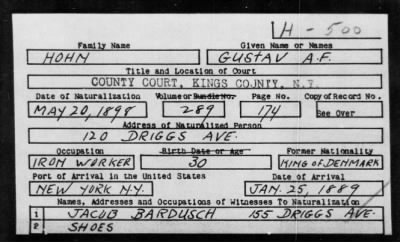 H-500
Family Name Given Name or Names
HOHN GUSTAV A.F.
Title and Location of Court
COUNTY COURT, KINGS COUNTY, N.Y.
Date of Naturalization Volume or Bundle No. Page No. Copy of Record No.
MAY 20, 1898 289 174 See Over
Address of Naturalized Person
120 DRIGGS AVE.
Occupation Birth Date or Age Former Nationality
IRON WORKER 30 KING OF DENMARK
Port of Arrival in the United States Date of Arrival
NEW YORK N.Y. JAN. 25, 1889
Names, Addresses and Occupations of Witnesses To Naturalization
1 JACOB BARDUSCH 155 DRIGGS AVE.
2 SHOES